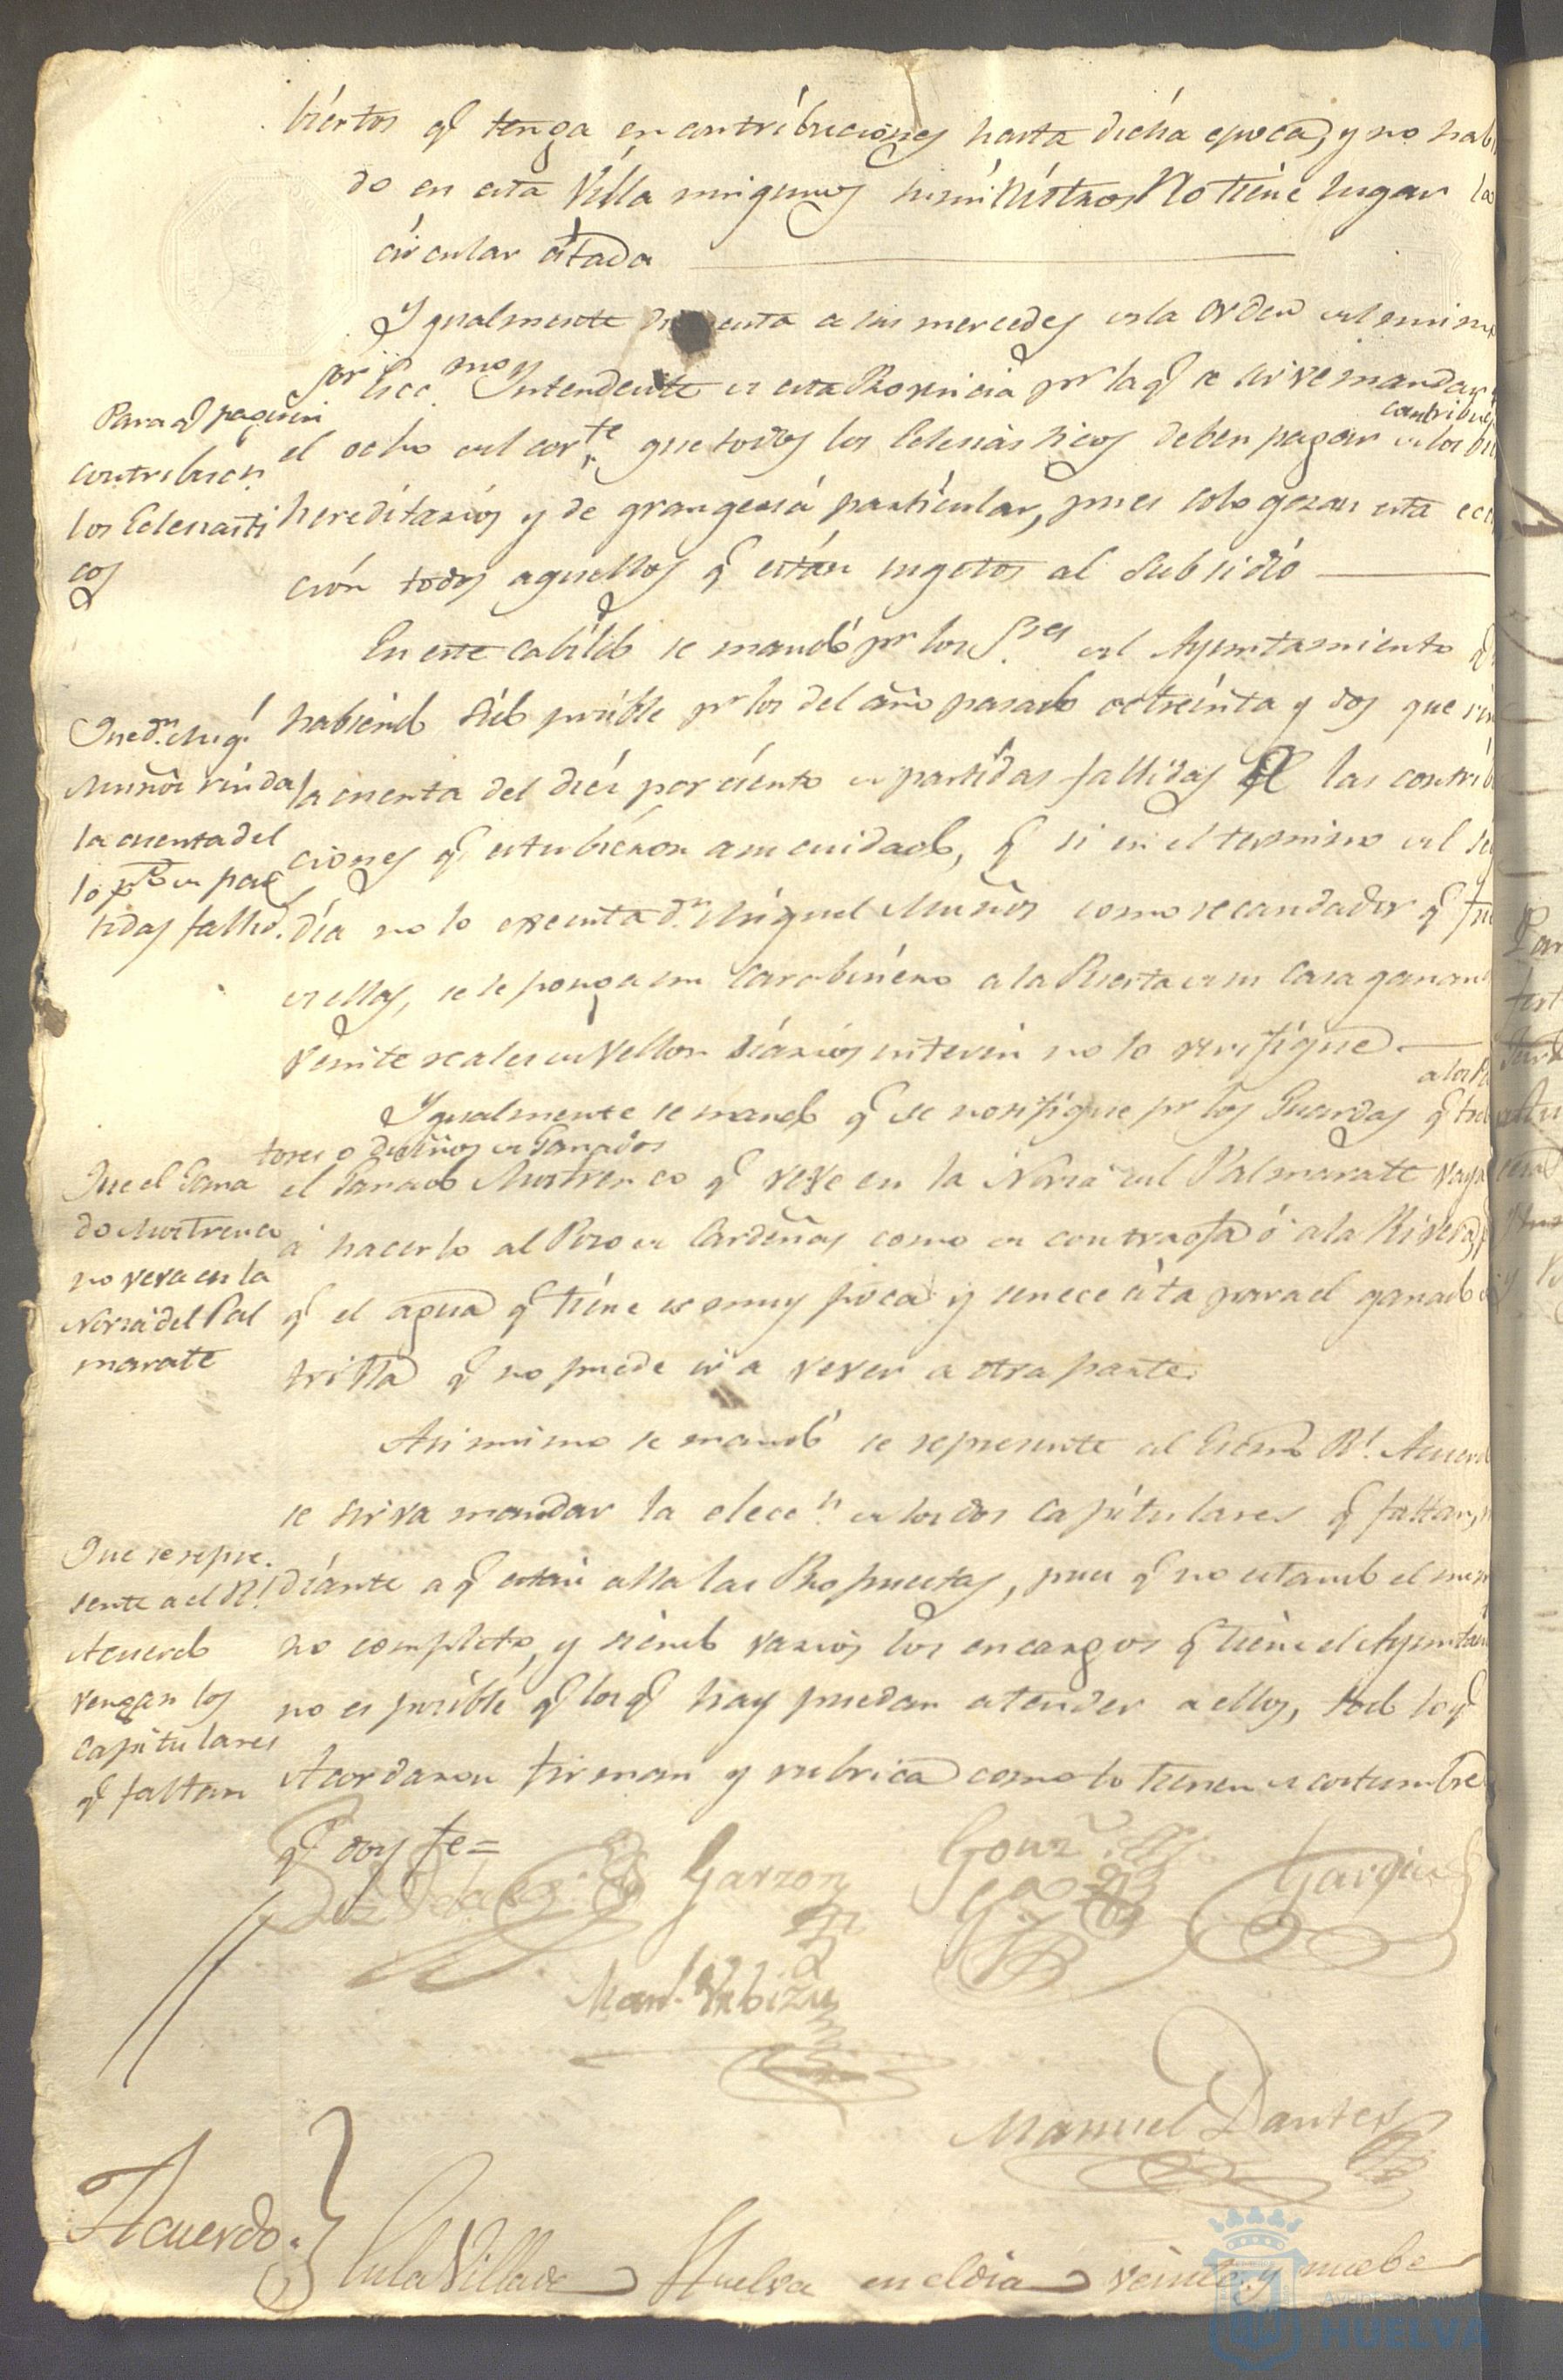 biertos q.e tenga en contribuciones hasta dicha epoca, y no habi
do en esta Villa ningunos suministros No tiene lugar la
circular citada
Ygualmente di cuenta a sus mercedes de la orden del mismo
Sor Ecc.mo Yntendente de esta Provincia pr la q.e se sirve mandar
contribuc
el ocho del corte. que todos los Eclesiasticos deben pagar de los
hereditarios y de grangeria particular, pues solo gozan esta
cion todos aquellos q.e están sugetos al Subsidio
Para q.e paguen
contribucn.
los Eclesiasti
cos
En este cabildo se mandó pr los S.res del Ayuntamiento q.e
habiendo sido posible pr los del año pasado de treinta y dos que
la cuenta del diez por ciento de partidas fallidas de las contrib
ciones q.e estubieron a su cuidado, q.e si en el termino del
dia no lo executa Dn. Miguel Muñoz como recaudador q.e fue
de ellas, se le ponga un Carabinero a la Puerta de su Casa ganando
veinte reales de vellon diarios interin no lo verifique
Que Dn. Migl.
Muñoz rinda
la cuenta del
10 p% de par
tidas fallid.
Ygualmente se mandó q.e se notifique pr los Guardas
tores o dueños de Ganados
el Ganado Mostrenco q.e veve en la Noria del Palmarate vaya
á hacerlo al Pozo de Cardeñas como de contrasta ó a la Rivera
q.e el agua q.e tiene es muy poca y se necesita para el ganado
trilla q.e no puede ir a vever a otra parte.
Que el Gana
do Mostrenco
no veva en la
Noria del Pal
marate
Asi mismo se mandó se represente al Excmo Rl. Acuerdo
se sirva mandar la elecc.n de los dos capitulares q.e faltan,
diante a q.e están alla las Propuestas, pues q.e no estando el
no completo, y siendo varios los encargos q.e tiene el Ayunta
no es posible q.e los q.e hay puedan atender a ellos, todo lo q.e
Acordaron firman y rubrican como lo tienen de costumbre
q.e doy fe =
Que se repre.
sente a el Rl.
Acuerdo
vengan los
capitulares
q.e faltan
Garzon
Gonz
Garcia
Manl. Urbizu
Manuel Dantes
Acuerdo. En la Villa de Huelva en el dia veinte y nuebe
Ayuntamiento de
HUELVA